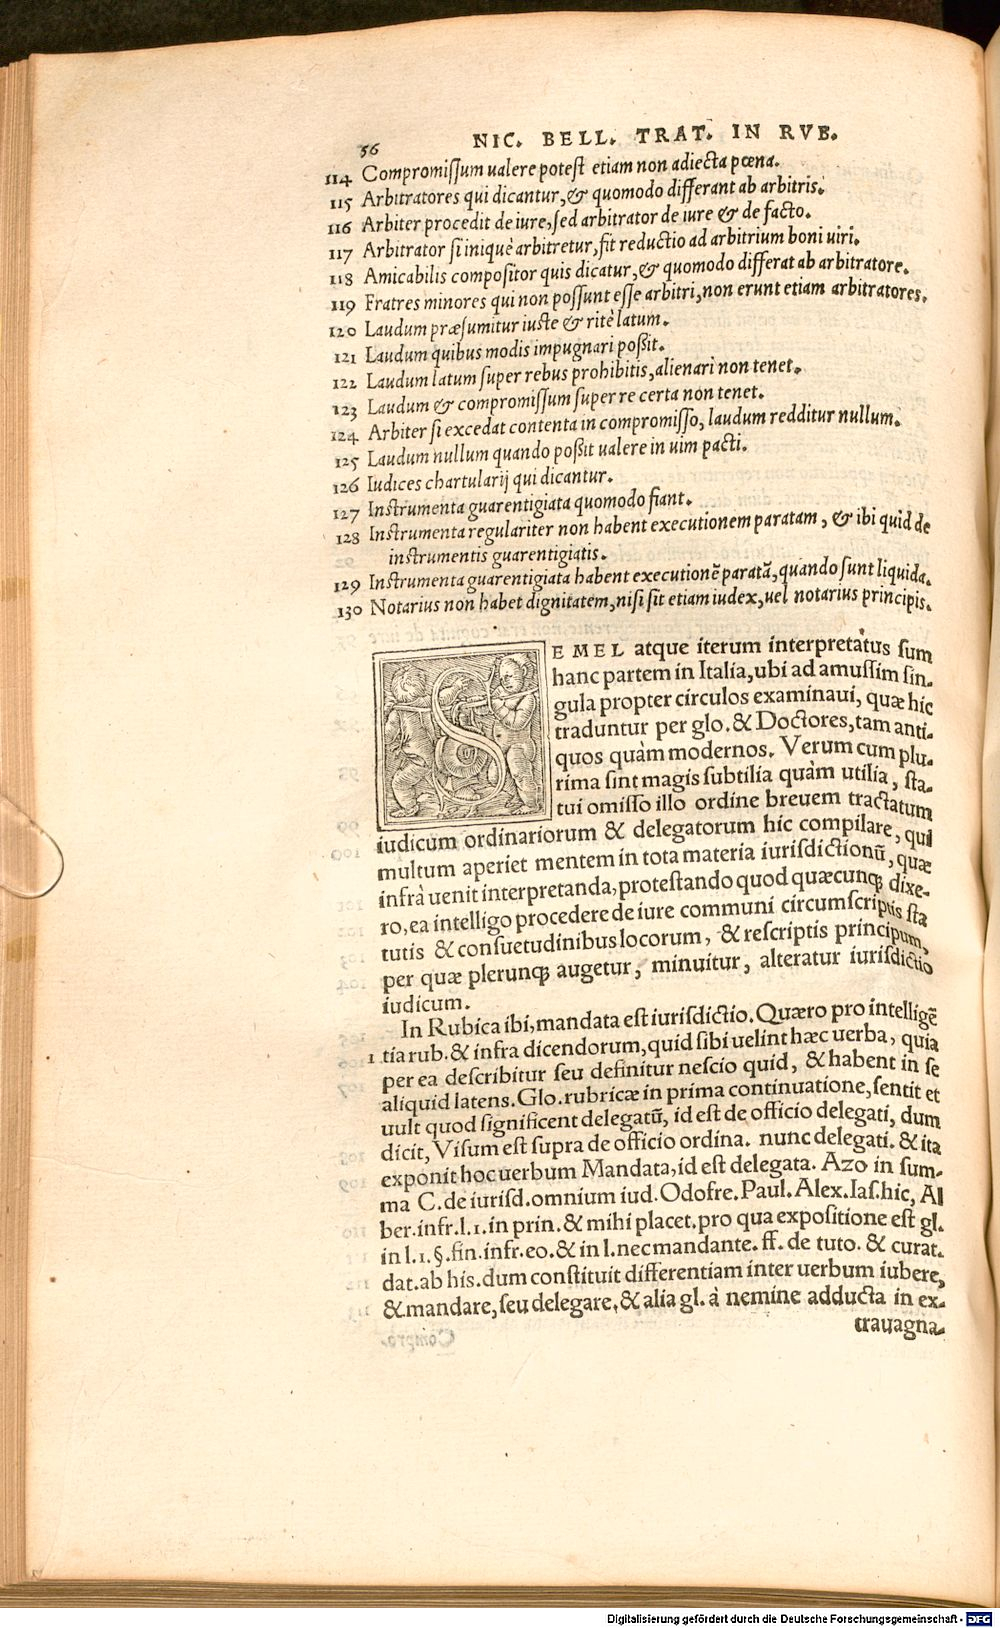 56 NIC. BELL. TRAT. IN RVB.
114 Compromissum ualere potest etiam non adiecta pœna.
115 Arbitratores qui dicantur, & quomodo differant ab arbitris.
116 Arbiter procedit de iure, sed arbitrator de iure & de facto.
117 Arbitrator si iniquè arbitretur, fit reductio ad arbitrium boni uiri.
118 Amicabilis compositor quis dicatur, & quomodo differat ab arbitratore.
119 Fratres minores qui non possunt esse arbitri, non erunt etiam arbitratores.
120 Laudum præsumitur iuste & ritè latum.
121 Laudum quibus modis impugnari poßit.
122 Laudum latum super rebus prohibitis, alienari non tenet.
123 Laudum & compromissum super re certa non tenet.
124 Arbiter si excedat contenta in compromisso, laudum redditur nullum.
125 Laudum nullum quando poßit ualere in uim pacti.
126 Iudices chartularij qui dicantur.
127 Instrumenta guarentigiata quomodo fiant.
128 Instrumenta regulariter non habent executionem paratam, & ibi quid de
instrumentis guarentigiatis.
129 Instrumenta guarentigiata habent executionē paratā, quando sunt liquida.
130 Notarius non habet dignitatem, nisi sit etiam iudex, uel notarius principis.
SEMEL atque iterum interpretatus sum
hanc partem in Italia, ubi ad amussim sin-
gula propter circulos examinaui, quæ hic
traduntur per glo. & Doctores, tam anti-
quos quàm modernos. Verum cum plu-
rima sint magis subtilia quàm utilia, sta-
tui omisso illo ordine breuem tractatum
iudicum ordinariorum & delegatorum hic compilare, qui
multum aperiet mentem in tota materia iurisdictionū, quæ
infrà uenit interpretanda, protestando quod quæcunq; dixe-
ro, ea intelligo procedere de iure communi circumscriptis sta
tutis & consuetudinibus locorum, & rescriptis principum,
per quæ plerunq; augetur, minuitur, alteratur iurisdictio
iudicum.
In Rubica ibi, mandata est iurisdictio. Quæro pro intelligē
1 tia rub. & infra dicendorum, quid sibi uelint hæc uerba, quia
per ea describitur seu definitur nescio quid, & habent in se
aliquid latens. Glo. rubricæ in prima continuatione, sentit et
uult quod significent delegatū, id est de officio delegati, dum
dicit, Visum est supra de officio ordina. nunc delegati. & ita
exponit hoc uerbum Mandata, id est delegata. Azo in sum-
ma C. de iurisd. omnium iud. Odofre. Paul. Alex. Ias. hic, Al
ber. infr. l. 1. in prin. & mihi placet. pro qua expositione est gl.
in l. 1. §. fin. infr. eo. & in l. nec mandante. ff. de tuto. & curat.
dat. ab his. dum constituit differentiam inter uerbum iubere,
& mandare, seu delegare, & alia gl. à nemine adducta in ex-
trauagna-
Digitalisierung gefördert durch die Deutsche Forschungsgemeinschaft - DFG